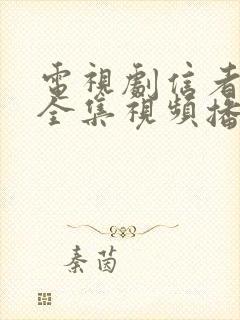 電視劇信者
全集視頻播
秦茵